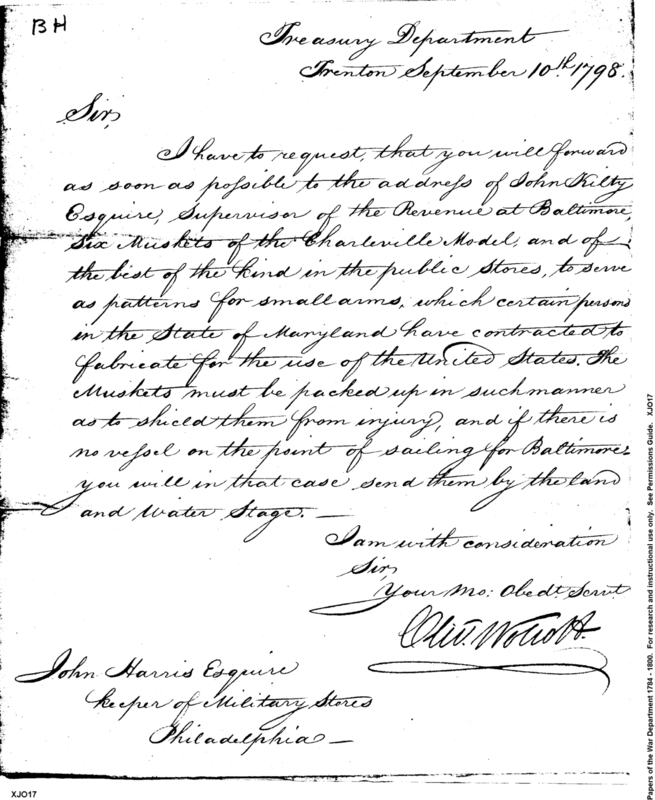 BH
Treasury Department
Trenton September 10th. 1798.
Sir,
I have to request, that you will forward
as soon as possible to the address of John Kilty
Esquire, Supervisor of the Revenue at Baltimore,
Six Muskets of the Charleville Model, and of
the best of the kind in the public Stores, to serve
as patterns for small arms, which certain persons
in the State of Maryland have contracted to
fabricate for the use of the United States. The
Muskets must be packed up in such manner
as to shield them from injury, and if there is
no vessel on the point of sailing for Baltimore,
you will in that case send them by the land
and Water Stage. —
I am with consideration
Sir,
Your Mo: Obedt. Servt.
Oliv. Wolcott.
John Harris Esquire
keeper of Military Stores
Philadelphia —
XJO17
Papers of the War Department 1784 - 1800. For research and instructional use only. See Permissions Guide. XJO17